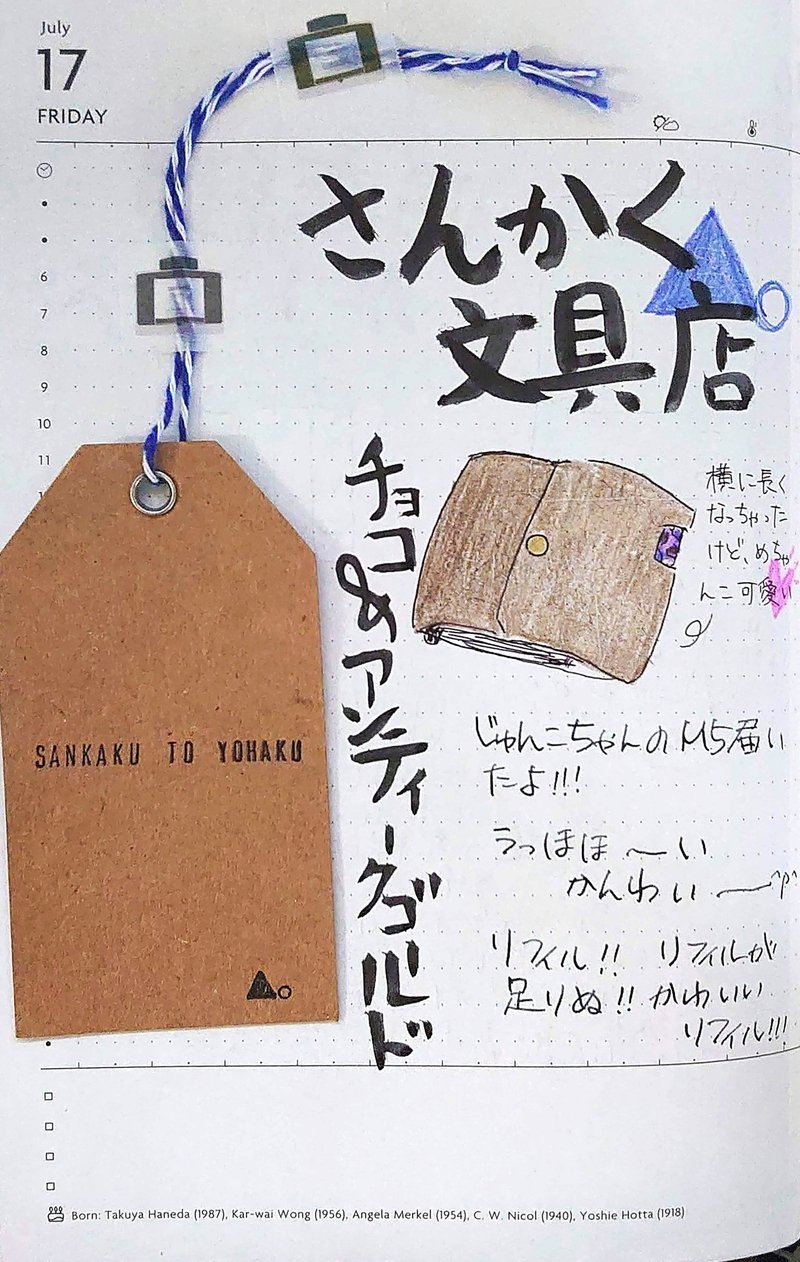 July
17
FRIDAY
さんかく
文具店
6
7
8
9
10
11
チョコ&アンティークゴールド
横に長く
なっちゃった
けど、めちゃ
んこ可愛い
SANKAKU TO YOHAKU
じゅんこちゃんのM5届い
たよ!!!
うっほほ〜い
かんわい〜
リフィル!! リフィルが
足りぬ!! かわいい
リフィル!!!
Born: Takuya Haneda (1987), Kar-wai Wong (1956), Angela Merkel (1954), C. W. Nicol (1940), Yoshie Hotta (1918)